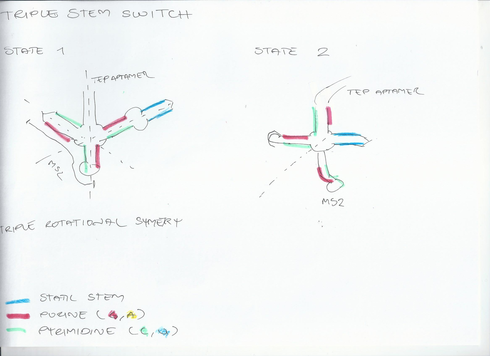 TRIPLE STEM SWITCH
STATE 1
TEP APTAMER
MS2
STATE 2
TEP APTAMER
MS2
TRIPLE ROTATIONAL SYMERY
STATIC STEM
PURINE (G, A)
PYRIMIDINE (C, U)